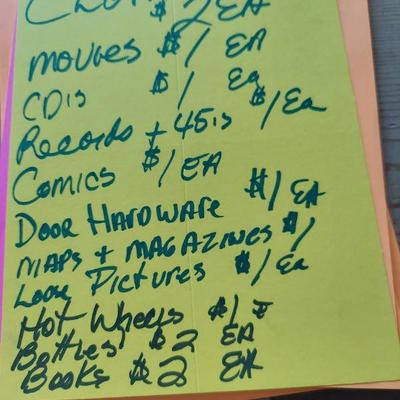 $2 EA
MOVIES $1 EA
CD's $1 Ea
Records + 45's $1 Ea
Comics $1 EA
Door HARDWARE $1 EA
MAPS + MAGAZINES $1
Loose Pictures $1 Ea
Hot Wheels $1 E
Bottles $2 EA
Books $2 EA